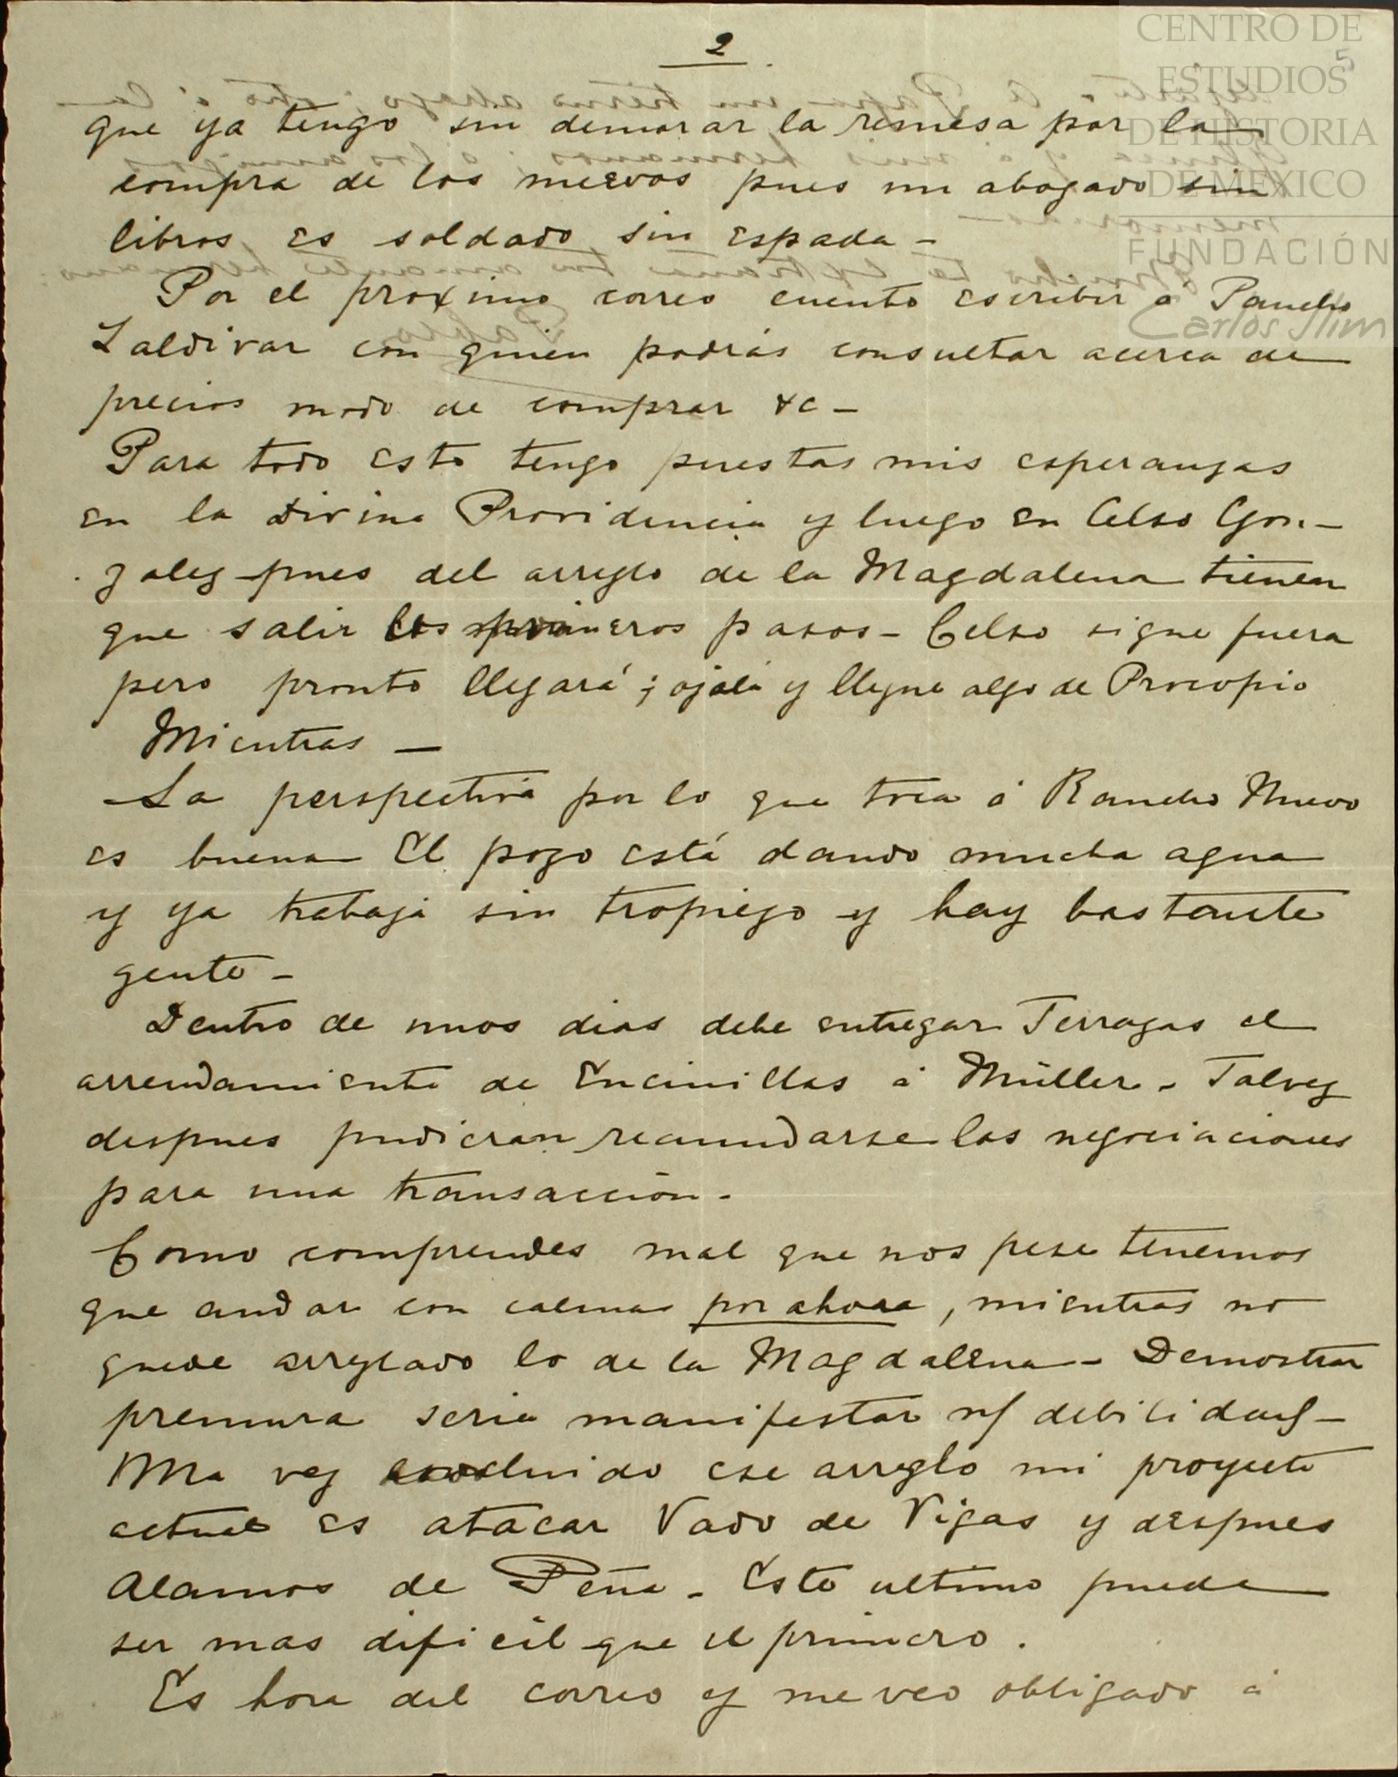 CENTRO DE
ESTUDIOS
DE HISTORIA
DE MEXICO
FUNDACIÓN
Carlos Slim
2
que ya tengo sin demorar la remesa por la
compra de los nuevos pues un abogado sin
libros es soldado sin espada -
Por el proximo correo cuento escribir á Pancho
Zaldivar con quien podrás consultar acerca de
precios modo de comprar &c -
Para todo esto tengo puestas mis esperanzas
en la Divina Providencia y luego en Celso Gon-
zalez pues del arreglo de la Magdalena tienen
que salir los primeros pasos - Celso sigue fuera
pero pronto llegará; ojalá y llegue algo de Procopio
Mientras -
La perspectiva por lo que toca á Rancho Nuevo
es buena El pozo está dando mucha agua
y ya trabaja sin tropiezo y hay bastante
gente -
Dentro de unos dias debe entregar Terrazas el
arrendamiento de Encinillas á Müller - Talvez
despues pudieran reanudarse las negociaciones
para una transacción -
Como comprendes mal que nos pese tenemos
que andar con calma por ahora, mientras no
quede arreglado lo de la Magdalena - Demostrar
premura seria manifestar debilidad -
Una vez concluido ese arreglo mi proyecto
actual es atacar Vado de Vigas y despues
Alamos de Peña - Este ultimo puede
ser mas dificil que el primero.
Es hora del correo y me veo obligado á